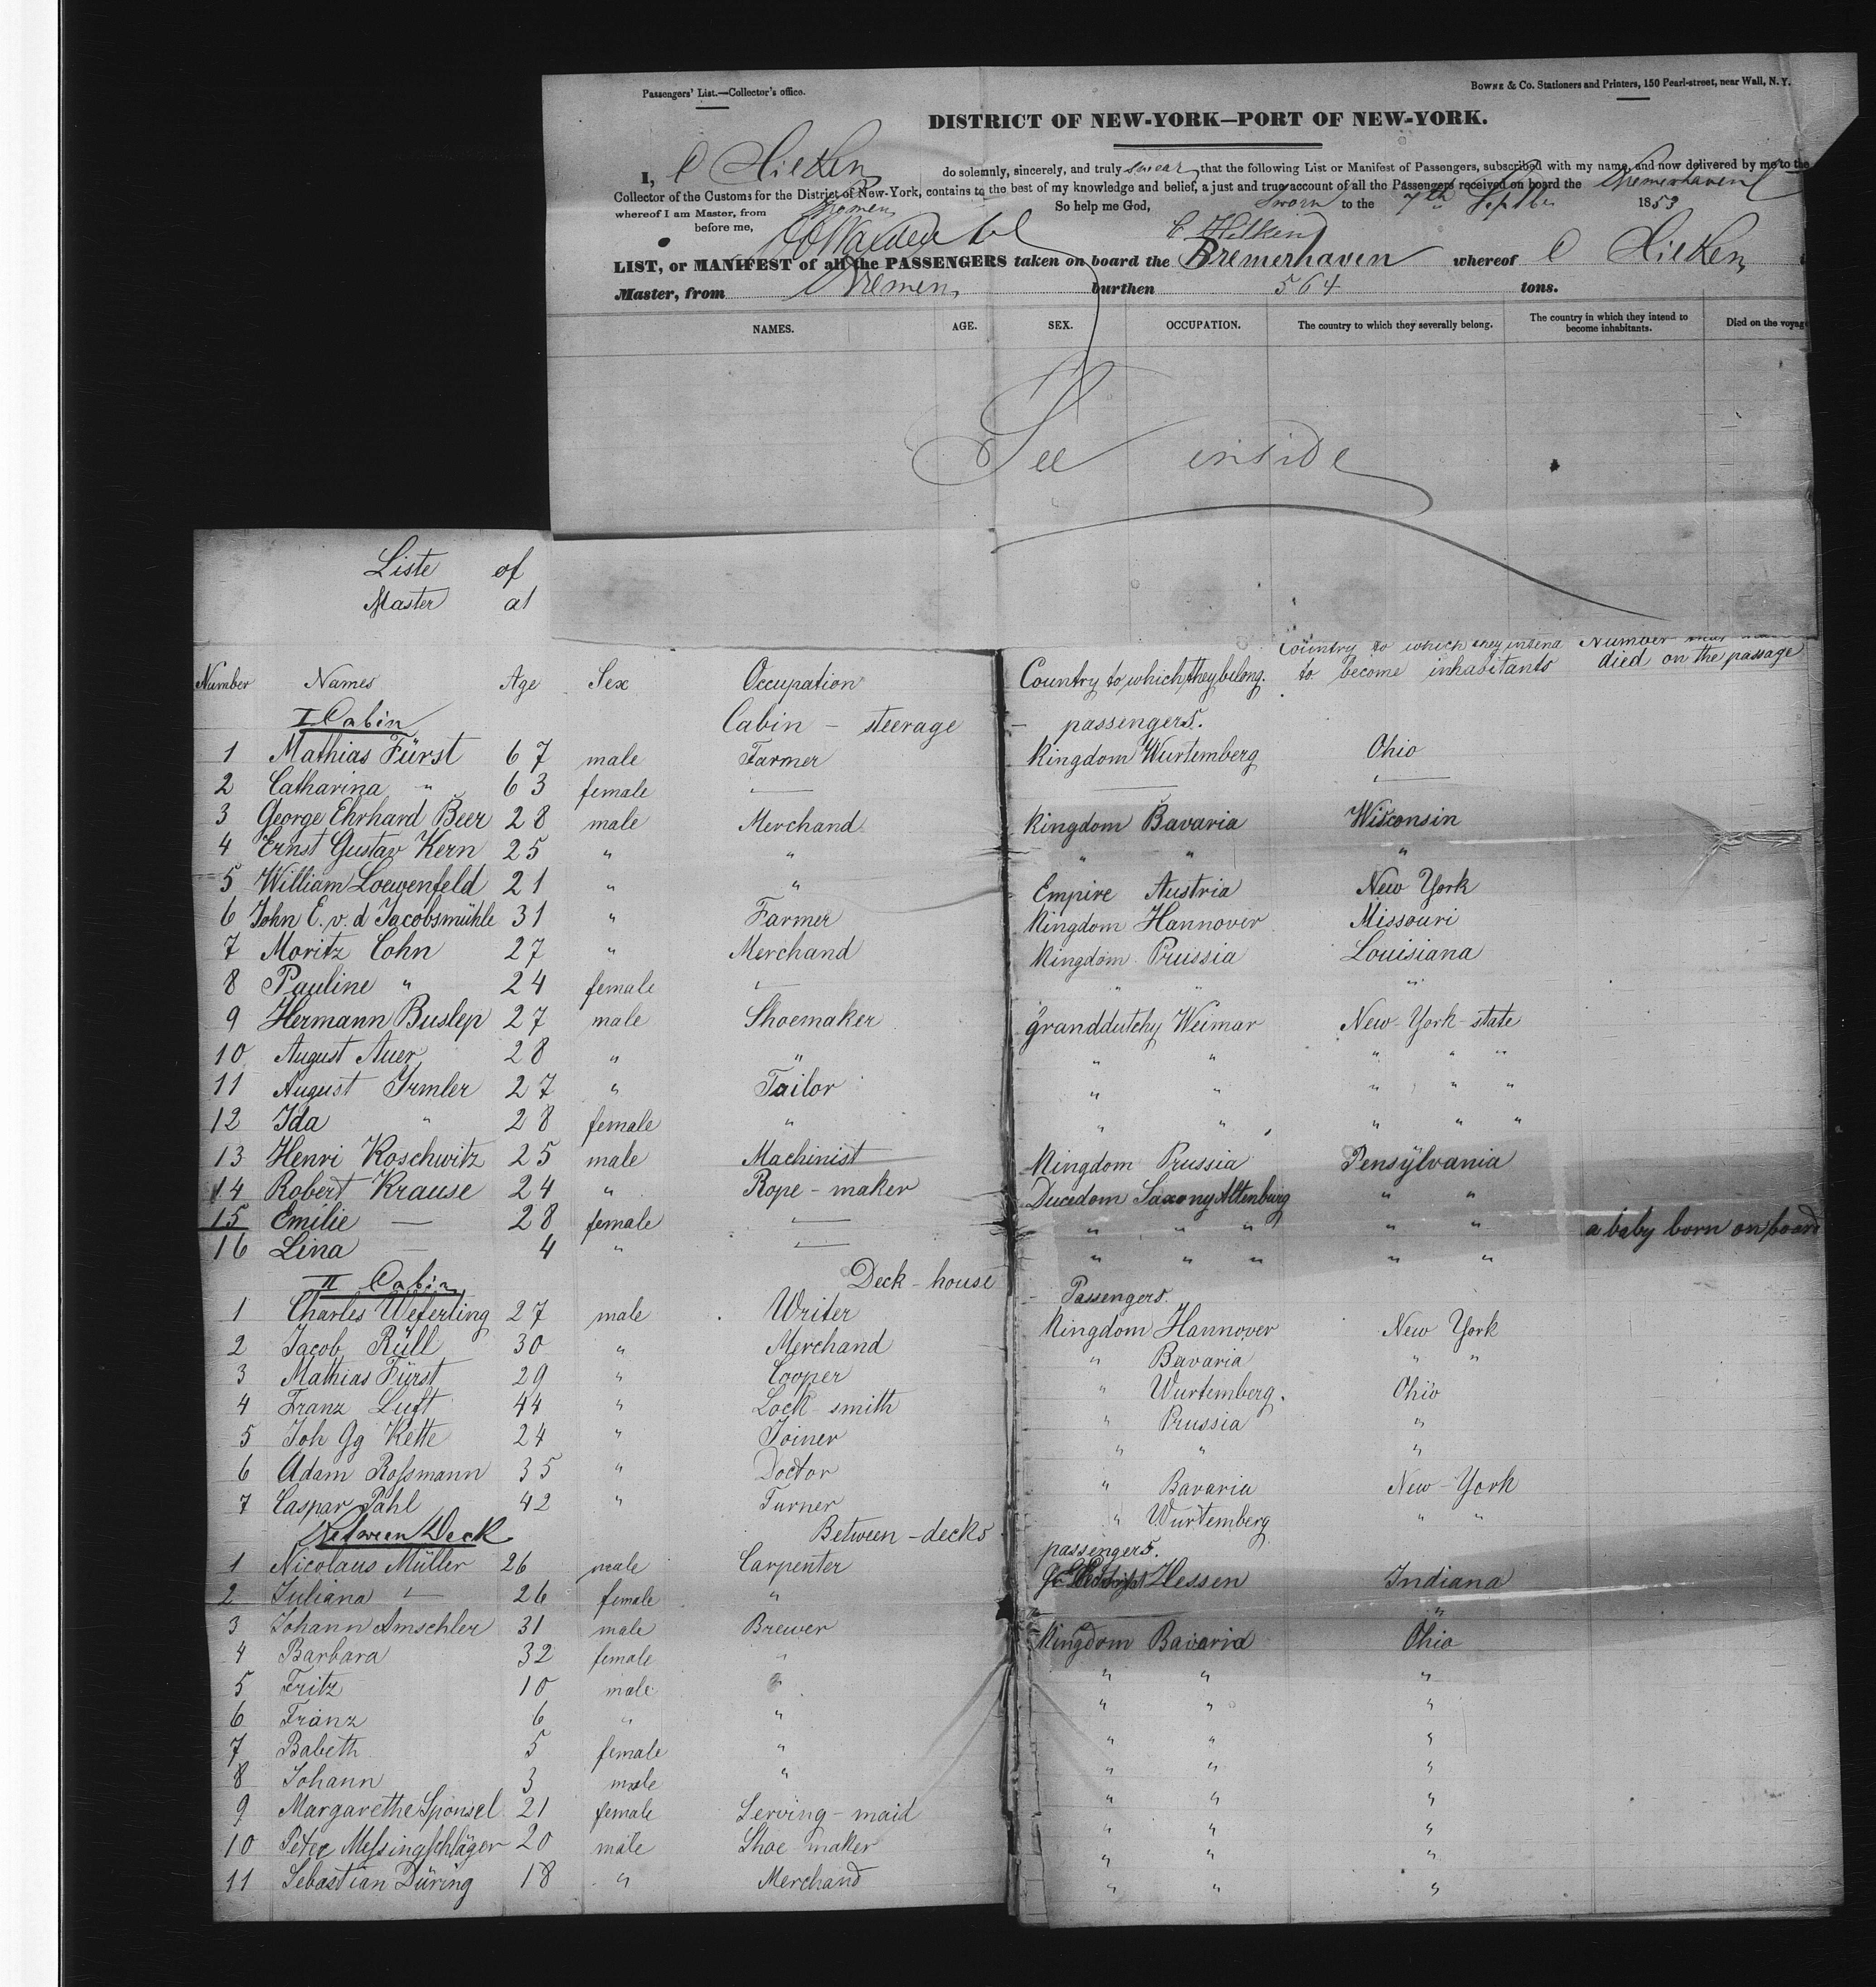 Passengers' List.—Collector's office.
BOWNE & Co. Stationers and Printers, 150 Pearl-street, near Wall, N. Y.
DISTRICT OF NEW-YORK—PORT OF NEW-YORK.
I, C Hilken do solemnly, sincerely, and truly swear that the following List or Manifest of Passengers, subscribed with my name, and now delivered by me to the
Collector of the Customs for the District of New-York, contains to the best of my knowledge and belief, a just and true account of all the Passengers received on board the Bremerhaven
whereof I am Master, from Bremen So help me God, Sworn to the 7th Septbr 1853
before me, C Hilken
LIST, or MANIFEST of all the PASSENGERS taken on board the Bremerhaven whereof C Hilken
Master, from Bremen burthen 564 tons.
NAMES. AGE. SEX. OCCUPATION. The country to which they severally belong. The country in which they intend to become inhabitants. Died on the voyage
See inside
Liste of
Master at
Number Names Age Sex Occupation Country to which they belong. Country to which they intend to become inhabitants Number died on the passage
I Cabin Cabin - steerage - passengers.
1 Mathias Fürst 67 male Farmer Kingdom Wurtemberg Ohio
2 Catharina " 63 female — — "—
3 George Ehrhard Beer 28 male Merchand Kingdom Bavaria Wisconsin
4 Ernst Gustav Kern 25 " " " " "
5 William Loewenfeld 21 " " Empire Austria New York
6 John E. v. d Jacobsmühle 31 " Farmer Kingdom Hannover Missouri
7 Moritz Cohn 27 " Merchand Kingdom Prussia Louisiana
8 Pauline " 24 female "— " " "
9 Hermann Buslep 27 male Shoemaker granddutchy Weimar New-York-state
10 August Auer 28 " " " " " " "
11 August Irmler 27 " Tailor " " " " "
12 Ida " 28 female " " " " " "
13 Henri Koschwitz 25 male Machinist Kingdom Prussia Pensylvania
14 Robert Krause 24 " Rope-maker Ducedom Saxony Altenburg " "
15 Emilie — 28 female "— " " " " " a baby born on board
16 Lina — 4 " "— " " " " "
II Cabin Deck-house - Passengers.
1 Charles Weferling 27 male Writer Kingdom Hannover New York
2 Jacob Rüll 30 " Merchand " Bavaria " "
3 Mathias Fürst 29 " Cooper " Wurtemberg. Ohio
4 Franz Luft 44 " Lock-smith " Prussia "
5 Joh Gg Kette 24 " Joiner " " "
6 Adam Roſsmann 35 " Doctor " Bavaria New-York
7 Caspar Pahl 42 " Turner " Wurtemberg " "
Between Deck Between-decks passengers.
1 Nicolaus Müller 26 male Carpenter Hessen Indiana
2 Juliana "— 26 female " — "
3 Johann Amschler 31 male Brewer Kingdom Bavaria Ohio
4 Barbara 32 female " " " "
5 Fritz 10 male " " " "
6 Franz 6 " " " " "
7 Babeth 5 female " " " "
8 Johann 3 male " " " "
9 Margarethe Sponsel 21 female Serving-maid " " "
10 Peter Meſsingſchläger 20 male Shoe maker " " "
11 Sebastian Düring 18 " Merchand " " "